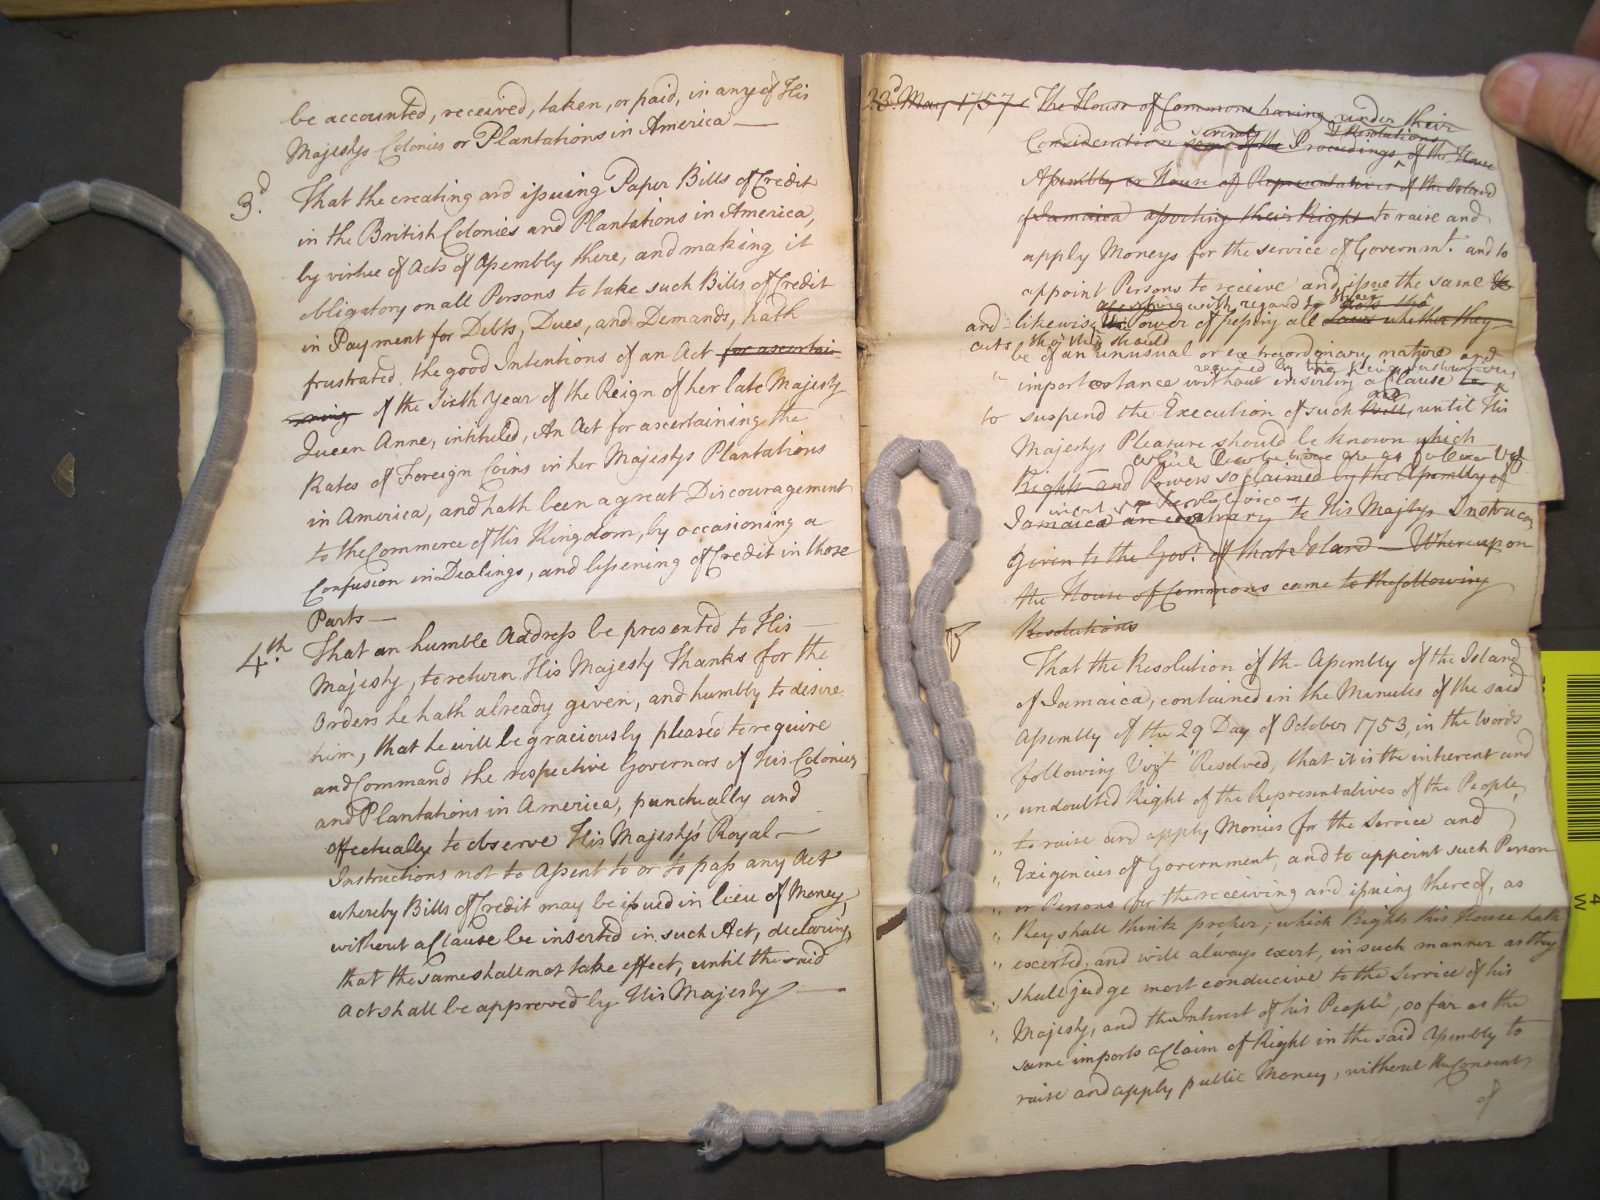 be accounted, received, taken, or paid, in any of His
Majestys Colonies or Plantations in America —
3.d That the creating and issuing Paper Bills of Credit
in the British Colonies and Plantations in America,
by virtue of Acts of Assembly there, and making it
obligatory on all Persons to take such Bills of Credit
in Payment for Debts, Dues, and Demands, hath
frustrated the good Intentions of an Act for ascertai-
ning of the Sixth Year of the Reign of her late Majesty
Queen Anne, intituled, An Act for ascertaining the
Rates of Foreign Coins in her Majestys Plantations
in America, and hath been a great Discouragement
to the Commerce of this Kingdom, by occasioning a
Confusion in Dealings, and lessening of Credit in those
Parts —
4.th That an humble Address be presented to His —
Majesty, to return His Majesty Thanks for the
Orders he hath already given, and humbly to desire
him, that he will be graciously pleased to require
and Command the respective Governors of His Colonies
and Plantations in America, punctually and
effectually to observe His Majesty's Royal —
Instructions not to Assent to or to pass any Act
whereby Bills of Credit may be issued in lieu of Money,
without a Clause be inserted in such Act, declaring,
that the same shall not take effect, until the said
Act shall be approved by His Majesty —
23d May 1757 The House of Commons having under their
several & Resolutions
Consideration some of the Proceedings of the House
Assembly or House of Representatives of the Island
of Jamaica asserting their Right to raise and
apply Moneys for the service of Governmt. and to
appoint Persons to receive and issue the same
with regard to
and likewise Power of passing all Laws whether they
acts tho' they should
be of an unusual or extraordinary nature and
required by
importance without inserting a Clause
to suspend the Execution of such Bill, until His
Majestys Pleasure should be known which
which are as follow
Rights and Powers so claimed by the Assembly of
Jamaica are contrary to His Majtys Instruc
given to the Govr. of that Island — Whereupon
the House of Commons came to the following
Resolutions
That the Resolution of the Assembly of the Island
of Jamaica, contained in the Minutes of the said
Assembly of the 29 Day of October 1753, in the Words
following Vizt. "Resolved, that it is the inherent and
„ undoubted Right of the Representatives of the People,
„ to raise and apply Monies for the Service and
„ Exigencies of Government, and to appoint such Person
„ or Persons for the receiving and issuing thereof, as
„ they shall think proper; which Right this House hath
„ exerted, and will always exert, in such manner as they
„ shall judge most conducive to the Service of his
„ Majesty, and the Interest of his People", so far as the
same imports a Claim of Right in the said Assembly to
raise and apply public Money, without the Consent
of